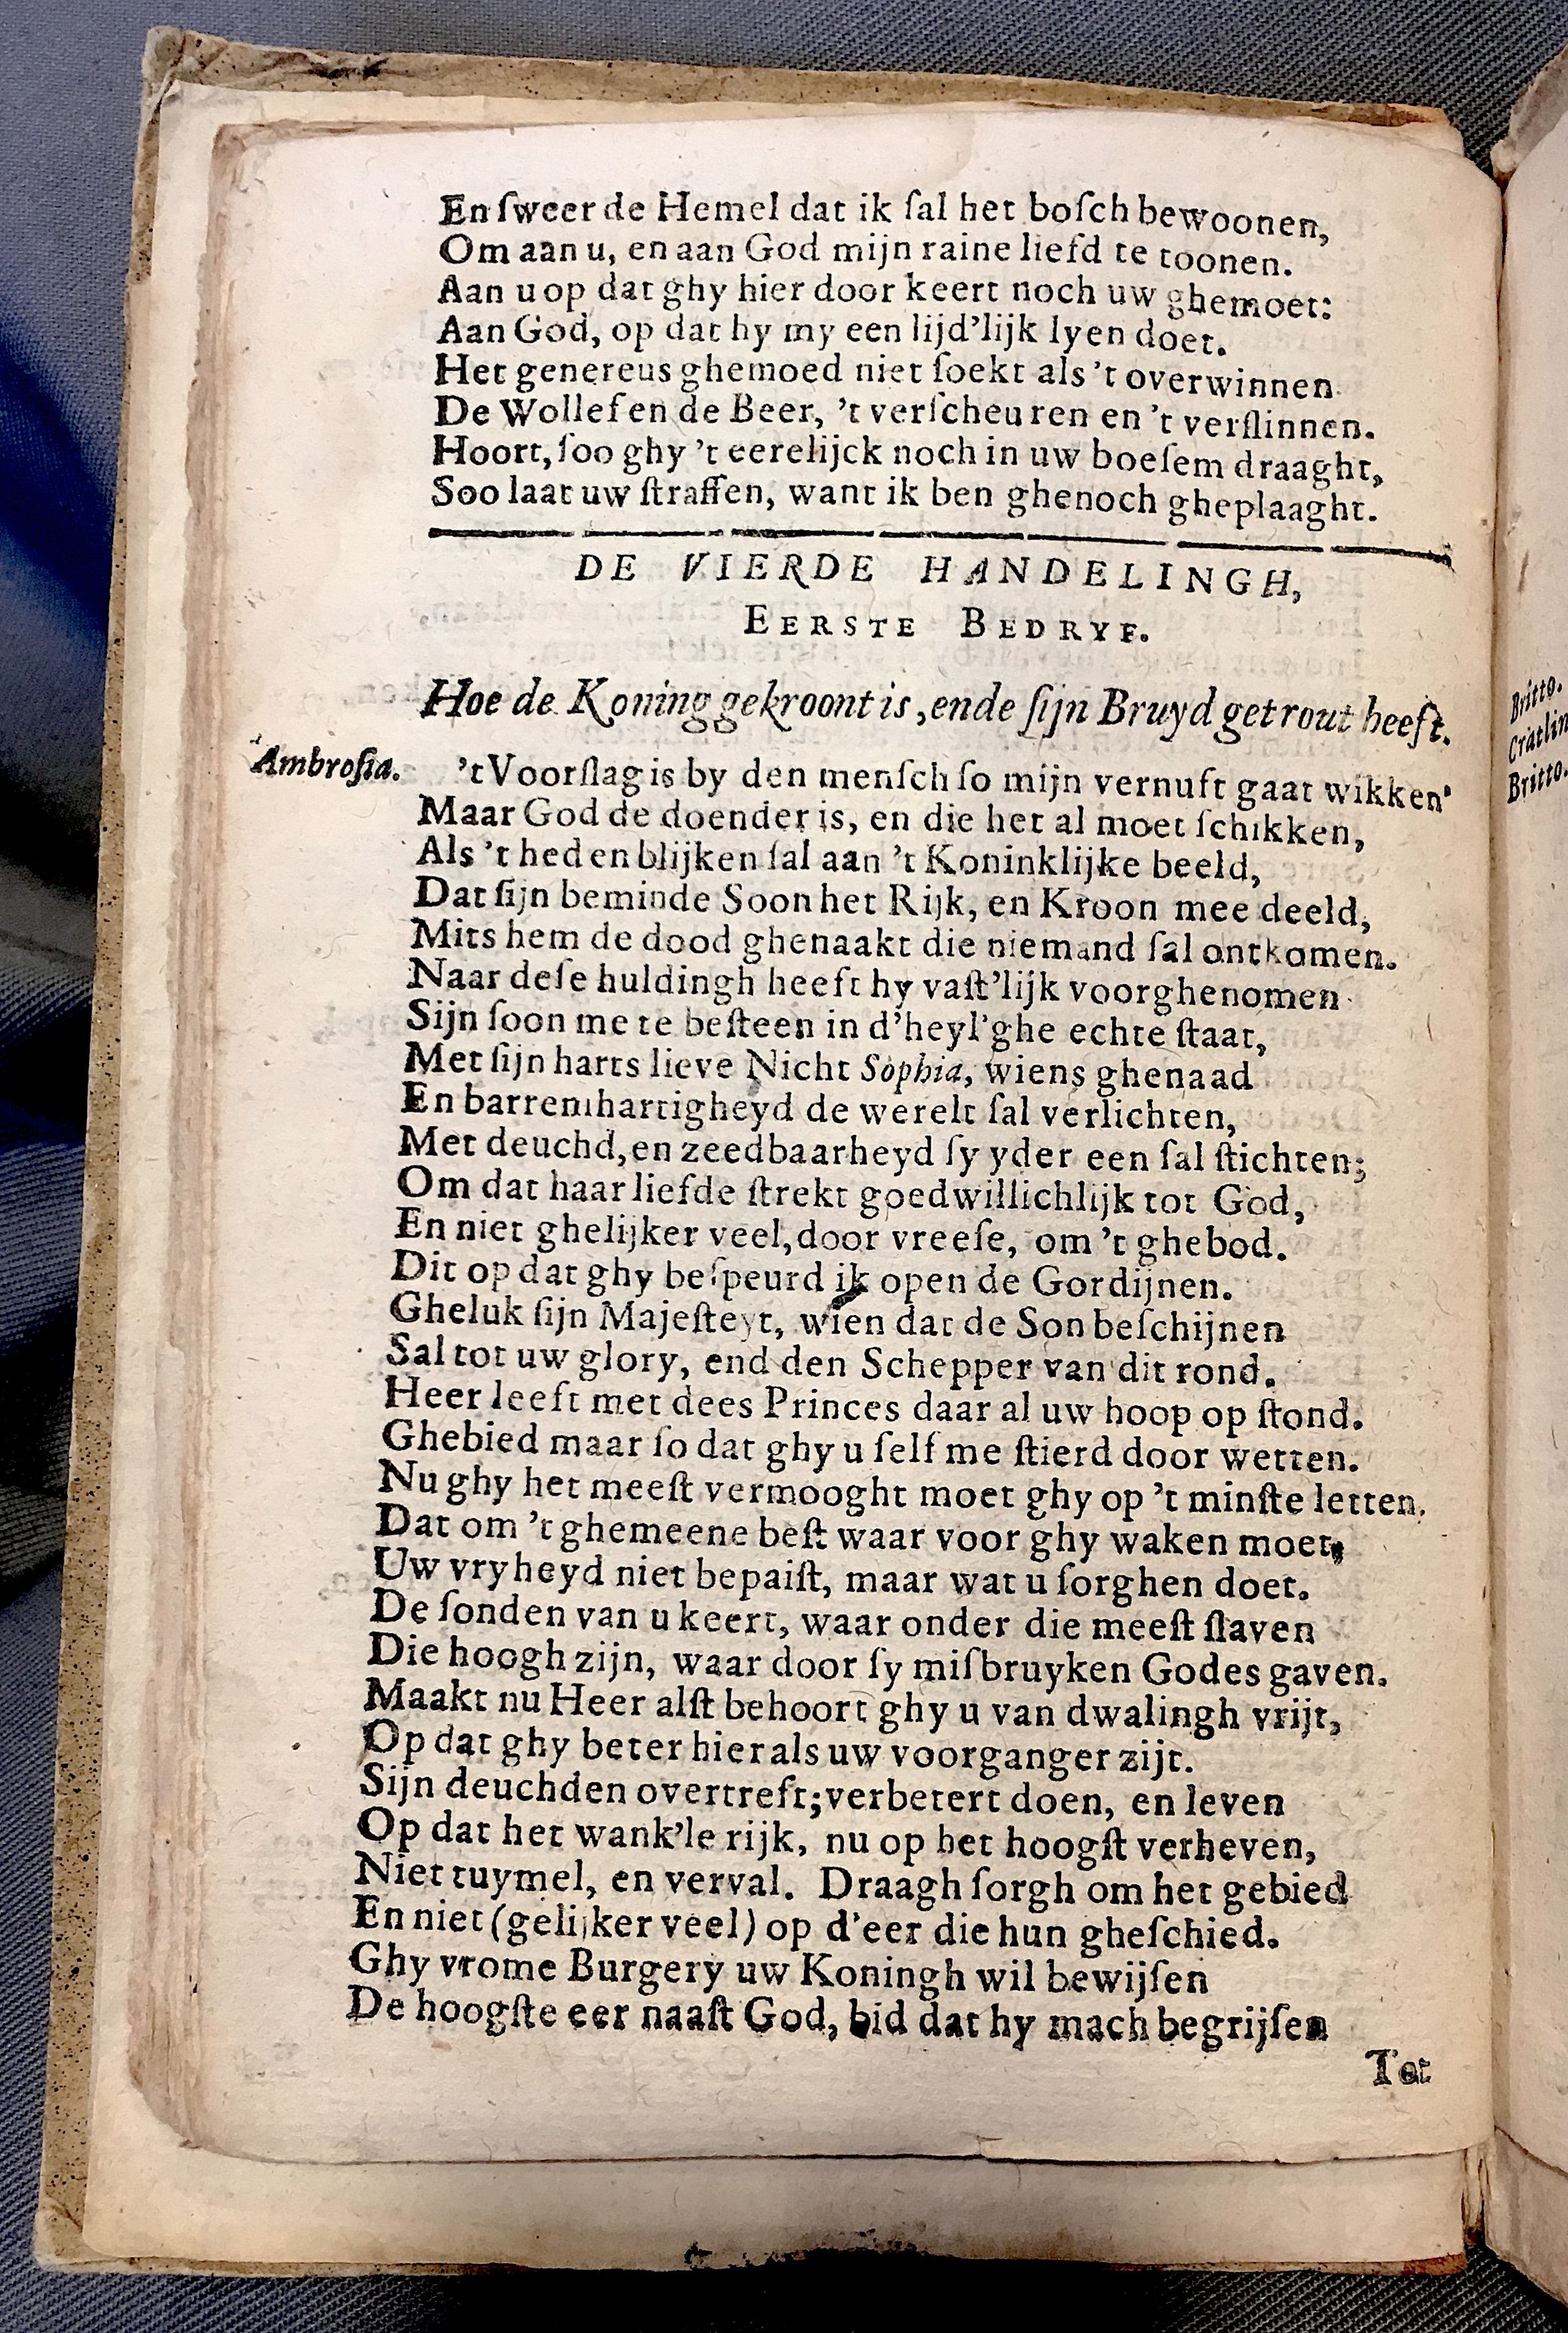 En ſweer de Hemel dat ik ſal het boſch bewoonen,
Om aan u, en aan God mijn raine liefd te toonen.
Aan u op dat ghy hier door keert noch uw ghemoet:
Aan God, op dat hy my een lijd'lijk lyen doet.
Het genereus ghemoed niet ſoekt als 't overwinnen
De Wollef en de Beer, 't verſcheuren en 't verſlinnen.
Hoort, ſoo ghy 't eerelijck noch in uw boeſem draaght,
Soo laat uw ſtraffen, want ik ben ghenoch gheplaaght.
DE VIERDE HANDELINGH,
EERSTE BEDRYF.
Hoe de Koning gekroont is, ende ſijn Bruyd getrout heeft.
Ambroſia. 't Voorſlag is by den menſch ſo mijn vernuft gaat wikken
Maar God de doender is, en die het al moet ſchikken,
Als 't heden blijken ſal aan 't Koninklijke beeld,
Dat ſijn beminde Soon het Rijk, en Kroon mee deeld,
Mits hem de dood ghenaakt die niemand ſal ontkomen.
Naar deſe huldingh heeft hy vaſt'lijk voorghenomen
Sijn ſoon me te beſteen in d'heyl'ghe echte ſtaat,
Met ſijn harts lieve Nicht Sophia, wiens ghenaad
En barremhartigheyd de werelt ſal verlichten,
Met deuchd, en zeedbaarheyd ſy yder een ſal ſtichten;
Om dat haar liefde ſtrekt goedwillichlijk tot God,
En niet ghelijker veel, door vreeſe, om 't ghebod.
Dit op dat ghy beſpeurd ik open de Gordijnen.
Gheluk ſijn Majeſteyt, wien dat de Son beſchijnen
Sal tot uw glory, end den Schepper van dit rond.
Heer leeft met dees Princes daar al uw hoop op ſtond.
Ghebied maar ſo dat ghy u ſelf me ſtierd door wetten.
Nu ghy het meeſt vermooght moet ghy op 't minſte letten.
Dat om 't ghemeene beſt waar voor ghy waken moet,
Uw vryheyd niet bepaiſt, maar wat u ſorghen doet.
De ſonden van u keert, waar onder die meeſt ſlaven
Die hoogh zijn, waar door ſy miſbruyken Godes gaven.
Maakt nu Heer alſt behoort ghy u van dwalingh vrijt,
Op dat ghy beter hier als uw voorganger zijt.
Sijn deuchden overtreft; verbetert doen, en leven
Op dat het wank'le rijk, nu op het hoogſt verheven,
Niet tuymel, en verval. Draagh ſorgh om het gebied
En niet (gelijker veel) op d'eer die hun gheſchied.
Ghy vrome Burgery uw Koningh wil bewijſen
De hoogſte eer naaſt God, bid dat hy mach begrijſen
Tot
Britto.
Cratlin
Britto.